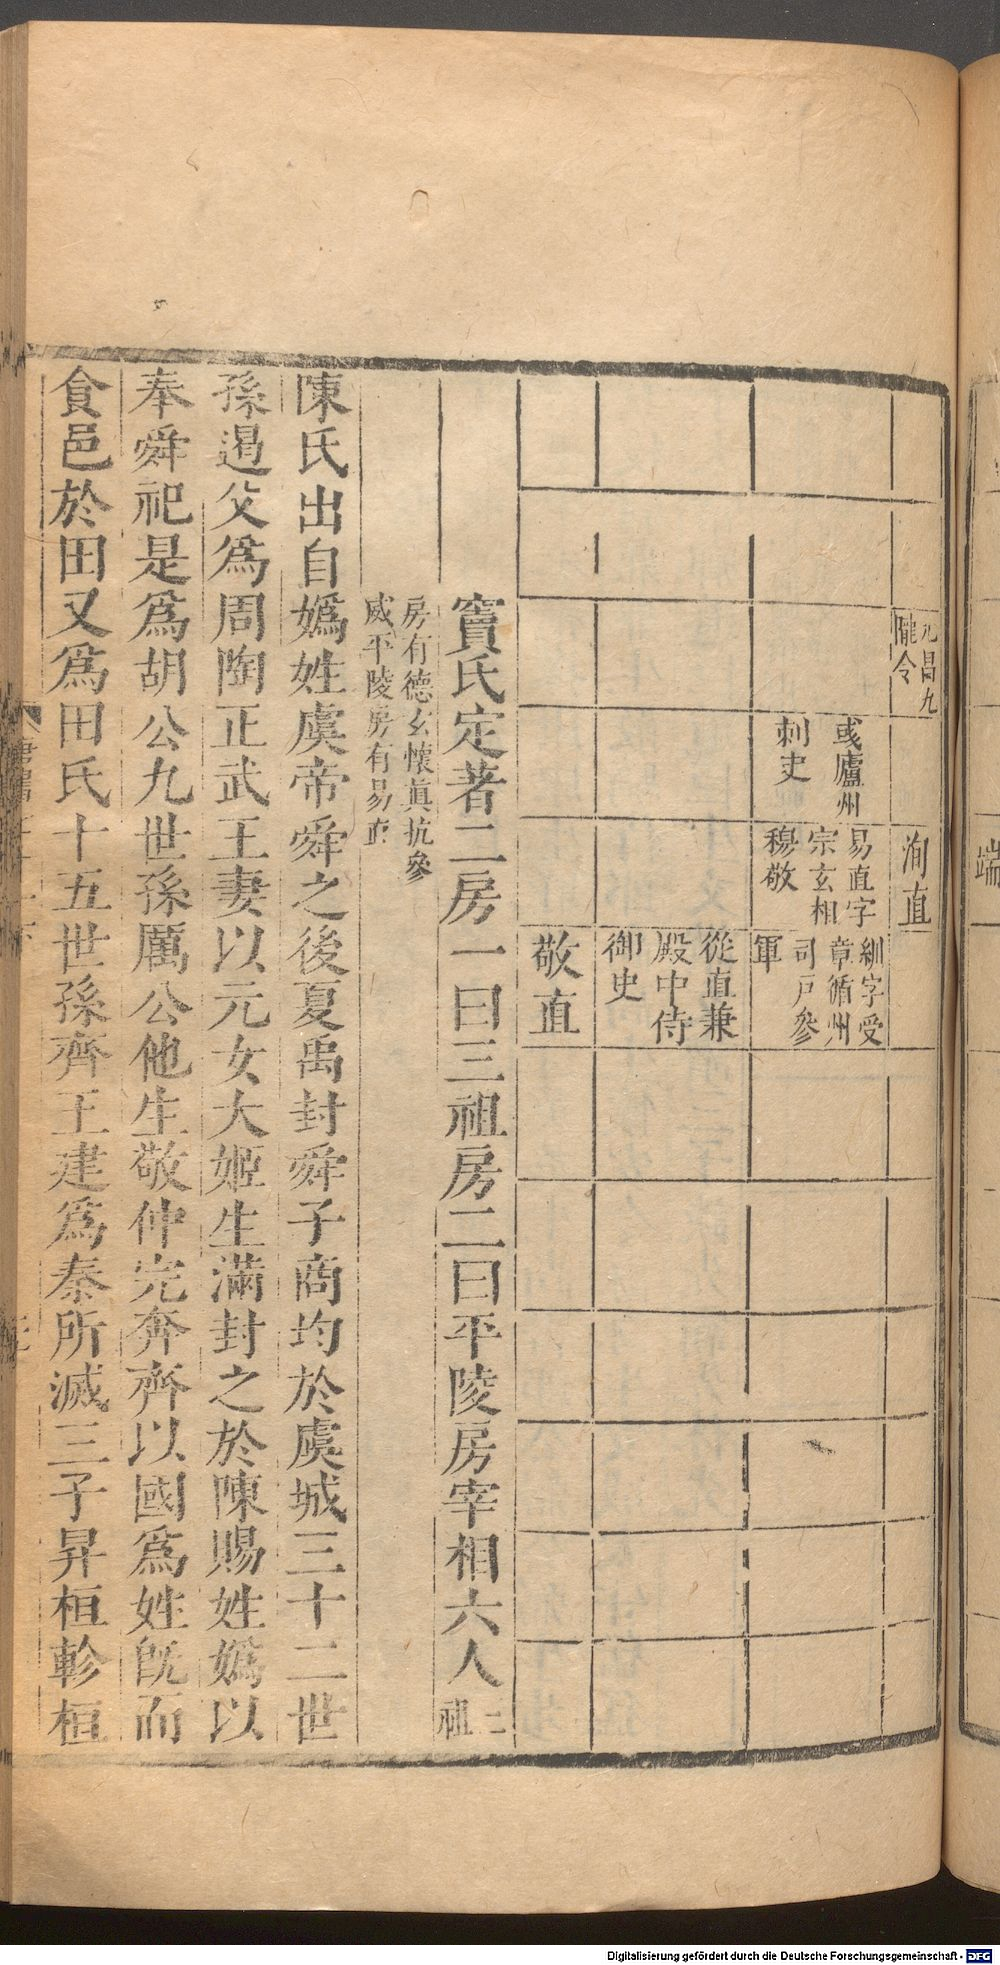 元昌九
隴令
洵直
端
彧廬州
刺史
易直字
宗玄相
穆敬
紃字受
章循州
司戶參
軍
從直兼
殿中侍
御史
敬直
竇氏定著二房一曰三祖房二曰平陵房宰相六人三
祖
房有德玄懷貞抗參
威平陵房有易直
陳氏出自嬀姓虞帝舜之後夏禹封舜子商均於虞城三十二世
孫遏父爲周陶正武王妻以元女大姬生滿封之於陳賜姓嬀以
奉舜祀是爲胡公九世孫厲公他生敬仲完奔齊以國爲姓旣而
食邑於田又爲田氏十五世孫齊王建爲秦所滅三子昇桓軫桓
Digitalisierung gefördert durch die Deutsche Forschungsgemeinschaft - DFG